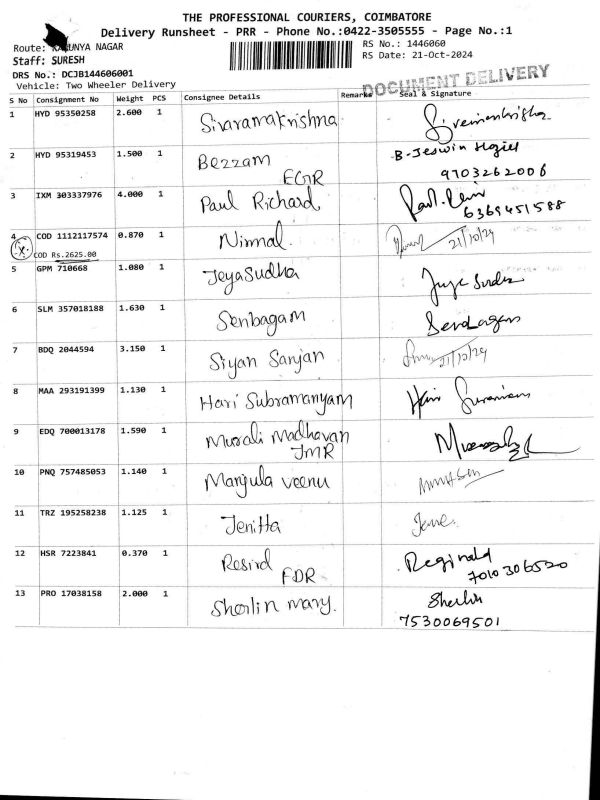 THE PROFESSIONAL COURIERS, COIMBATORE
Delivery Runsheet - PRR - Phone No.:0422-3505555 - Page No.:1
Route: KARUNYA NAGAR
RS No.: 1446060
Staff: SURESH
RS Date: 21-Oct-2024
DRS No.: DCJB144606001
DOCUMENT DELIVERY
Vehicle: Two Wheeler Delivery
S No Consignment No Weight PCS Consignee Details Remarks Seal & Signature
1 HYD 95350258 2.600 1 Sivaramakrishna
2 HYD 95319453 1.500 1 Bezzam B. Jeswin
EGR 9703262006
3 IXM 303337976 4.000 1 Paul Richard
6369451588
4 COD 1112117574 0.870 1 Nirmal 21/10/24
COD Rs.2625.00
5 GPM 710668 1.080 1 Jeyasudha
6 SLM 357018188 1.630 1 Senbagam
7 BDQ 2044594 3.150 1 Siyan Sanjan 21/10/24
8 MAA 293191399 1.130 1 Hari Subramanyam
9 EDQ 700013178 1.590 1 Murali Madhavan
JMR
10 PNQ 757485053 1.140 1 Manjula veenu
11 TRZ 195258238 1.125 1 Jenitta
12 HSR 7223841 0.370 1 Resird Reginald
FDR 7010306520
13 PRO 17038158 2.000 1 Sherlin mary. Sherlin
7530069501